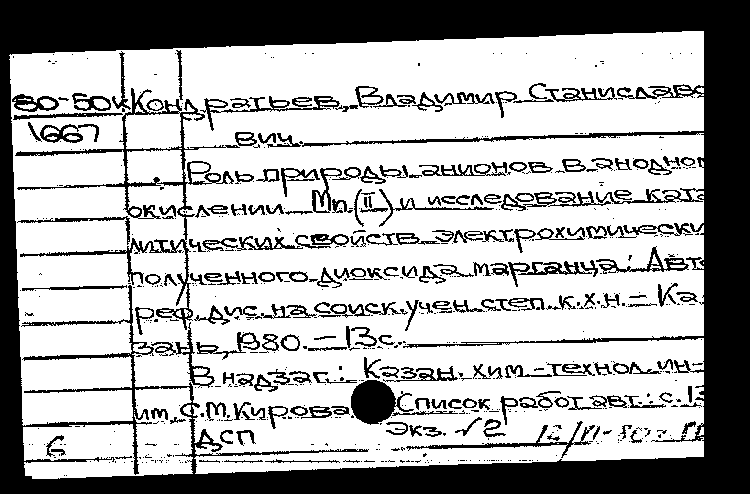 80-50к Кондратьев, Владимир Станиславо
1667 вич.
Роль природы анионов в анодном
окислении Mn (II) и исследование ката
литических свойств электрохимически
полученного диоксида марганца: Авто
реф. дис. на соиск. учен. степ. к.х.н. – Ка
зань, 1980. – 13 с.
В надзаг.: Казан. хим.-технол. ин-
им. С.М. Кирова Список работ авт.: с. 13
6 ДСП Экз. √2